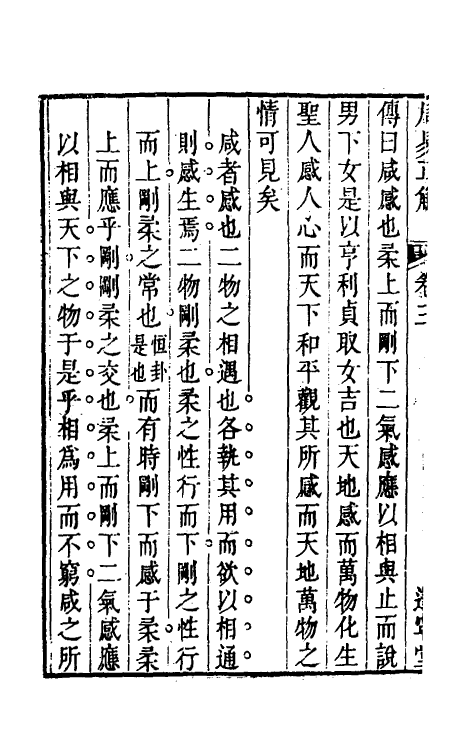 周易正解 卷十二
傳曰咸感也柔上而剛下二氣感應以相與止而說
男下女是以亨利貞取女吉也天地感而萬物化生
聖人感人心而天下和平觀其所感而天地萬物之
情可見矣
咸者感也二物之相遇也各執其用而欲以相通
則感生焉二物剛柔也柔之性行而下剛之性行
而上剛柔之常也恒卦是也而有時剛下而感于柔柔
上而應乎剛剛柔之交也柔上而剛下二氣感應
以相與天下之物于是乎相爲用而不窮咸之所